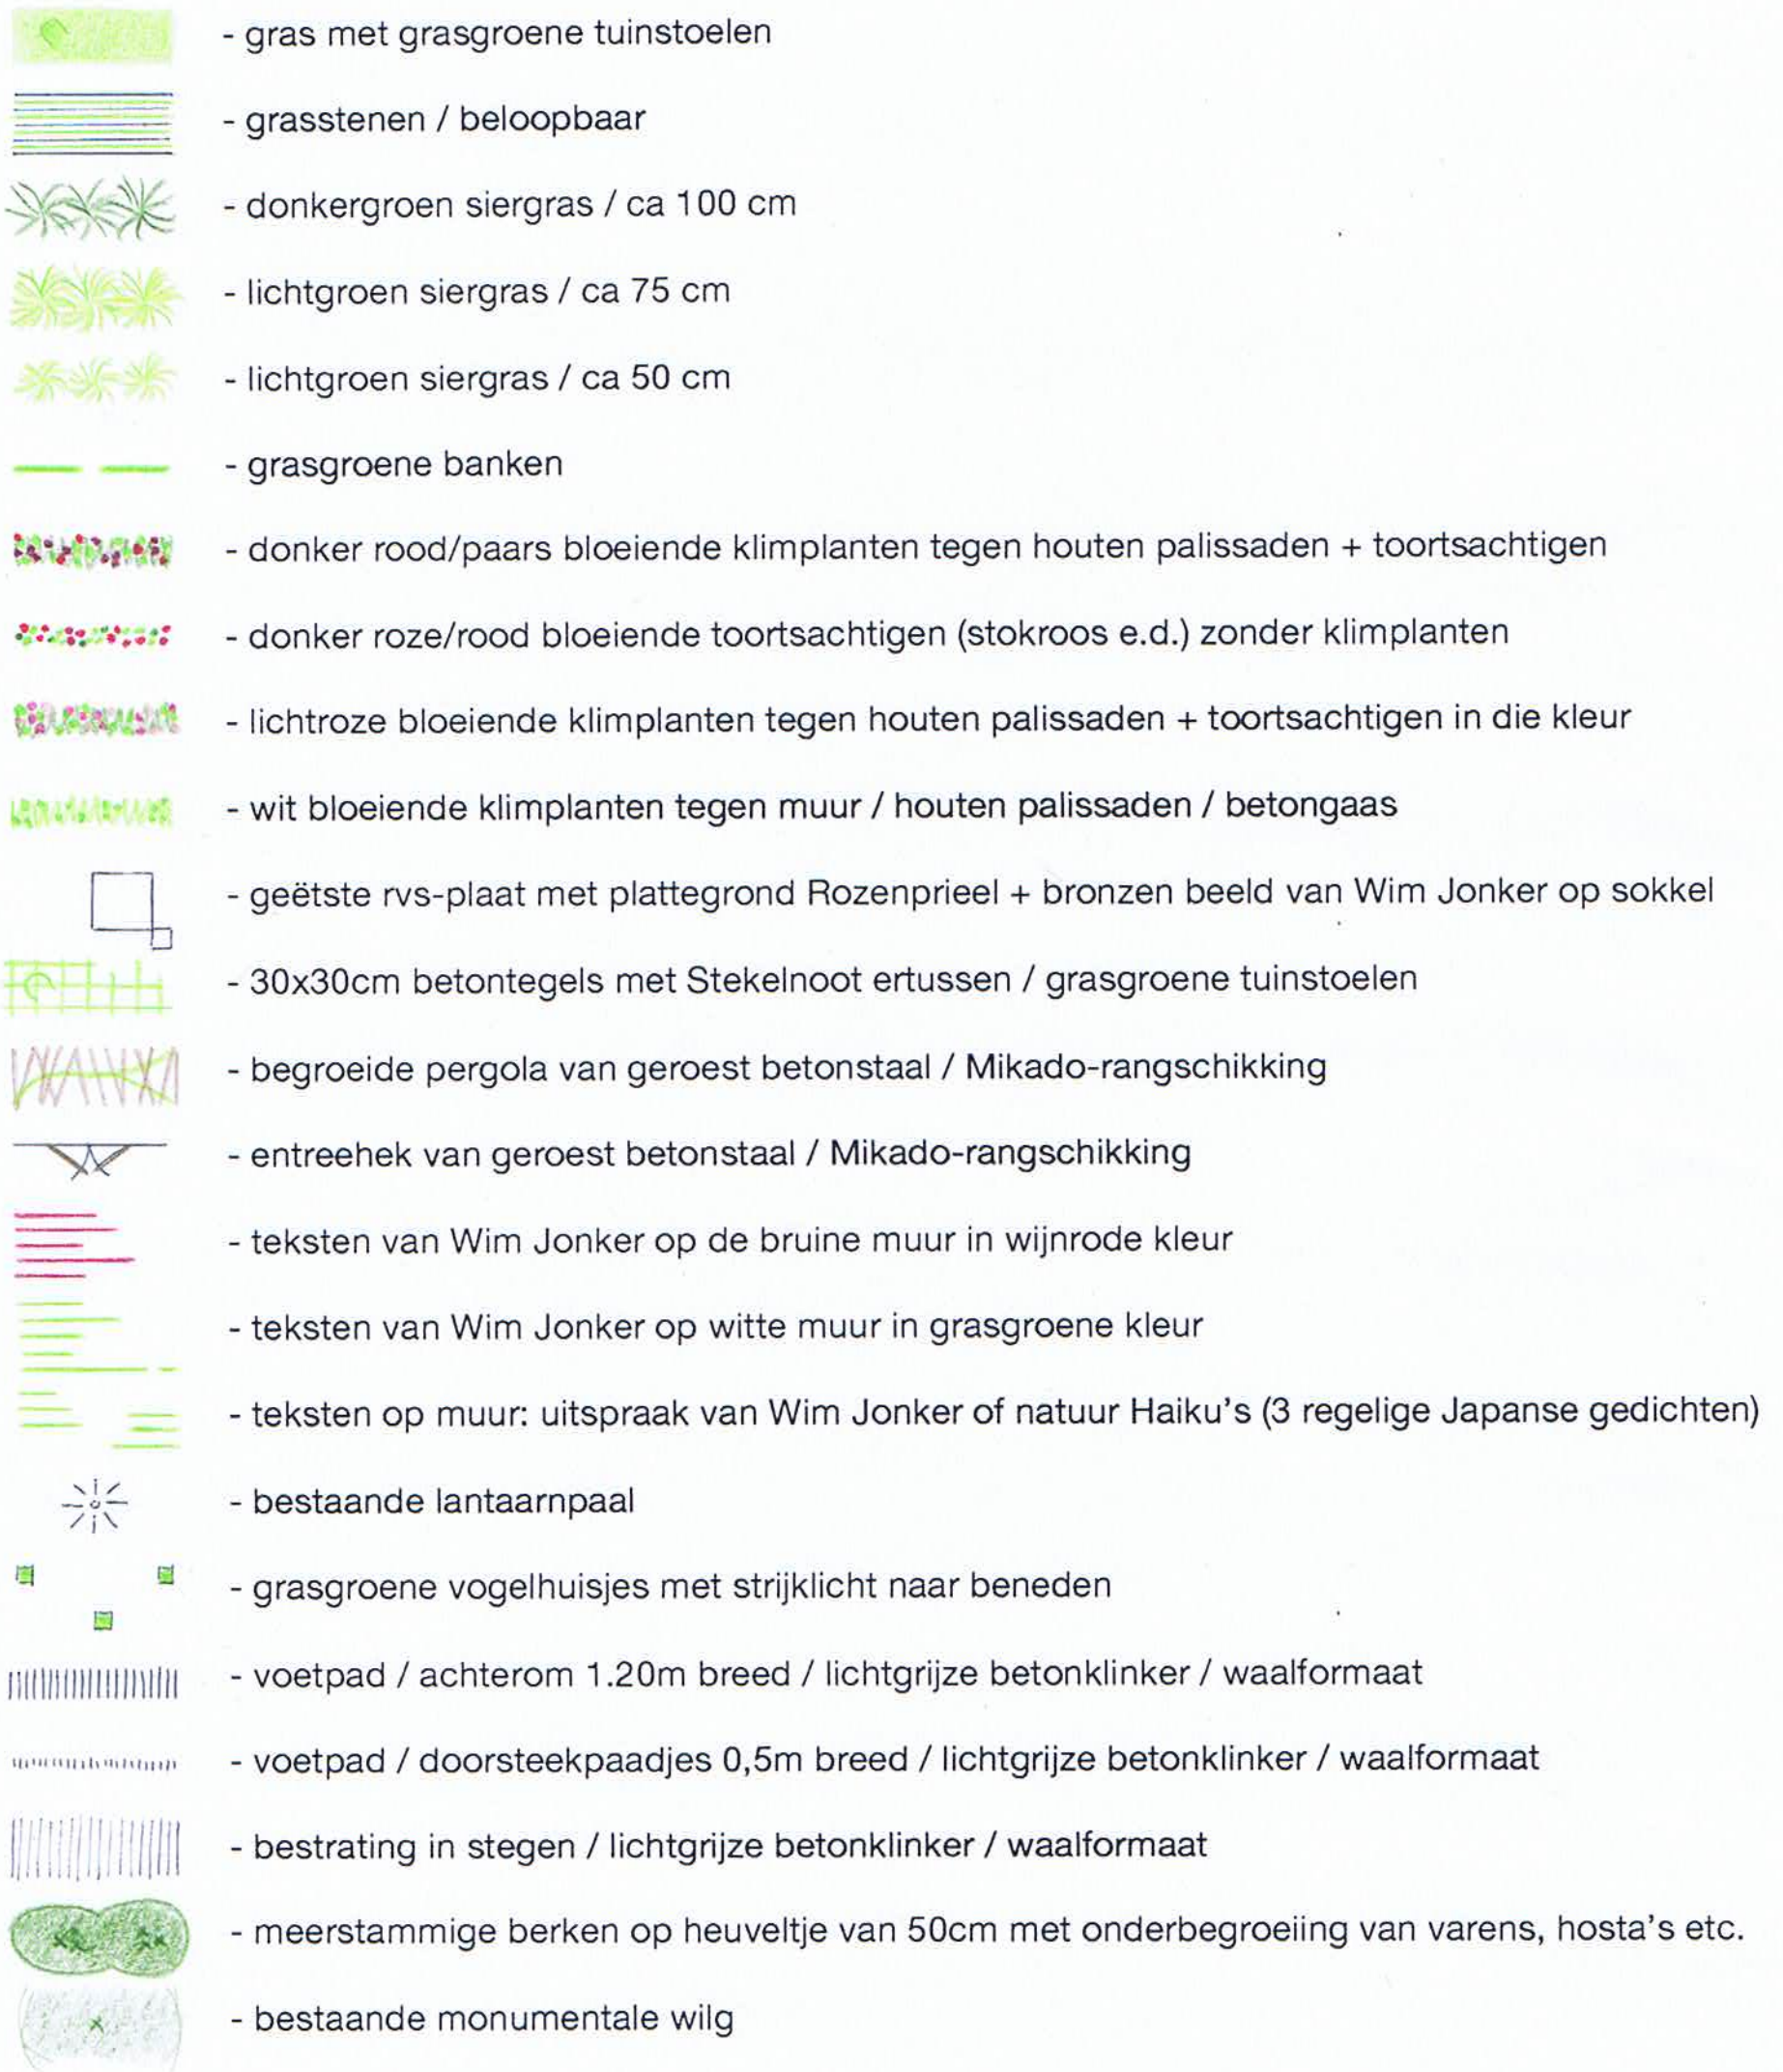 - gras met grasgroene tuinstoelen
- grasstenen / beloopbaar
- donkergroen siergras / ca 100 cm
- lichtgroen siergras / ca 75 cm
- lichtgroen siergras / ca 50 cm
- grasgroene banken
- donker rood/paars bloeiende klimplanten tegen houten palissaden + toortsachtigen
- donker roze/rood bloeiende toortsachtigen (stokroos e.d.) zonder klimplanten
- lichtroze bloeiende klimplanten tegen houten palissaden + toortsachtigen in die kleur
- wit bloeiende klimplanten tegen muur / houten palissaden / betongaas
- geëtste rvs-plaat met plattegrond Rozenprieel + bronzen beeld van Wim Jonker op sokkel
- 30x30cm betontegels met Stekelnoot ertussen / grasgroene tuinstoelen
- begroeide pergola van geroest betonstaal / Mikado-rangschikking
- entreehek van geroest betonstaal / Mikado-rangschikking
- teksten van Wim Jonker op de bruine muur in wijnrode kleur
- teksten van Wim Jonker op witte muur in grasgroene kleur
- teksten op muur: uitspraak van Wim Jonker of natuur Haiku's (3 regelige Japanse gedichten)
- bestaande lantaarnpaal
- grasgroene vogelhuisjes met strijklicht naar beneden
- voetpad / achterom 1.20m breed / lichtgrijze betonklinker / waalformaat
- voetpad / doorsteekpaadjes 0,5m breed / lichtgrijze betonklinker / waalformaat
- bestrating in stegen / lichtgrijze betonklinker / waalformaat
- meerstammige berken op heuveltje van 50cm met onderbegroeiing van varens, hosta's etc.
- bestaande monumentale wilg